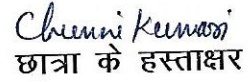 Chunni Kumari
छात्रा के हस्ताक्षर